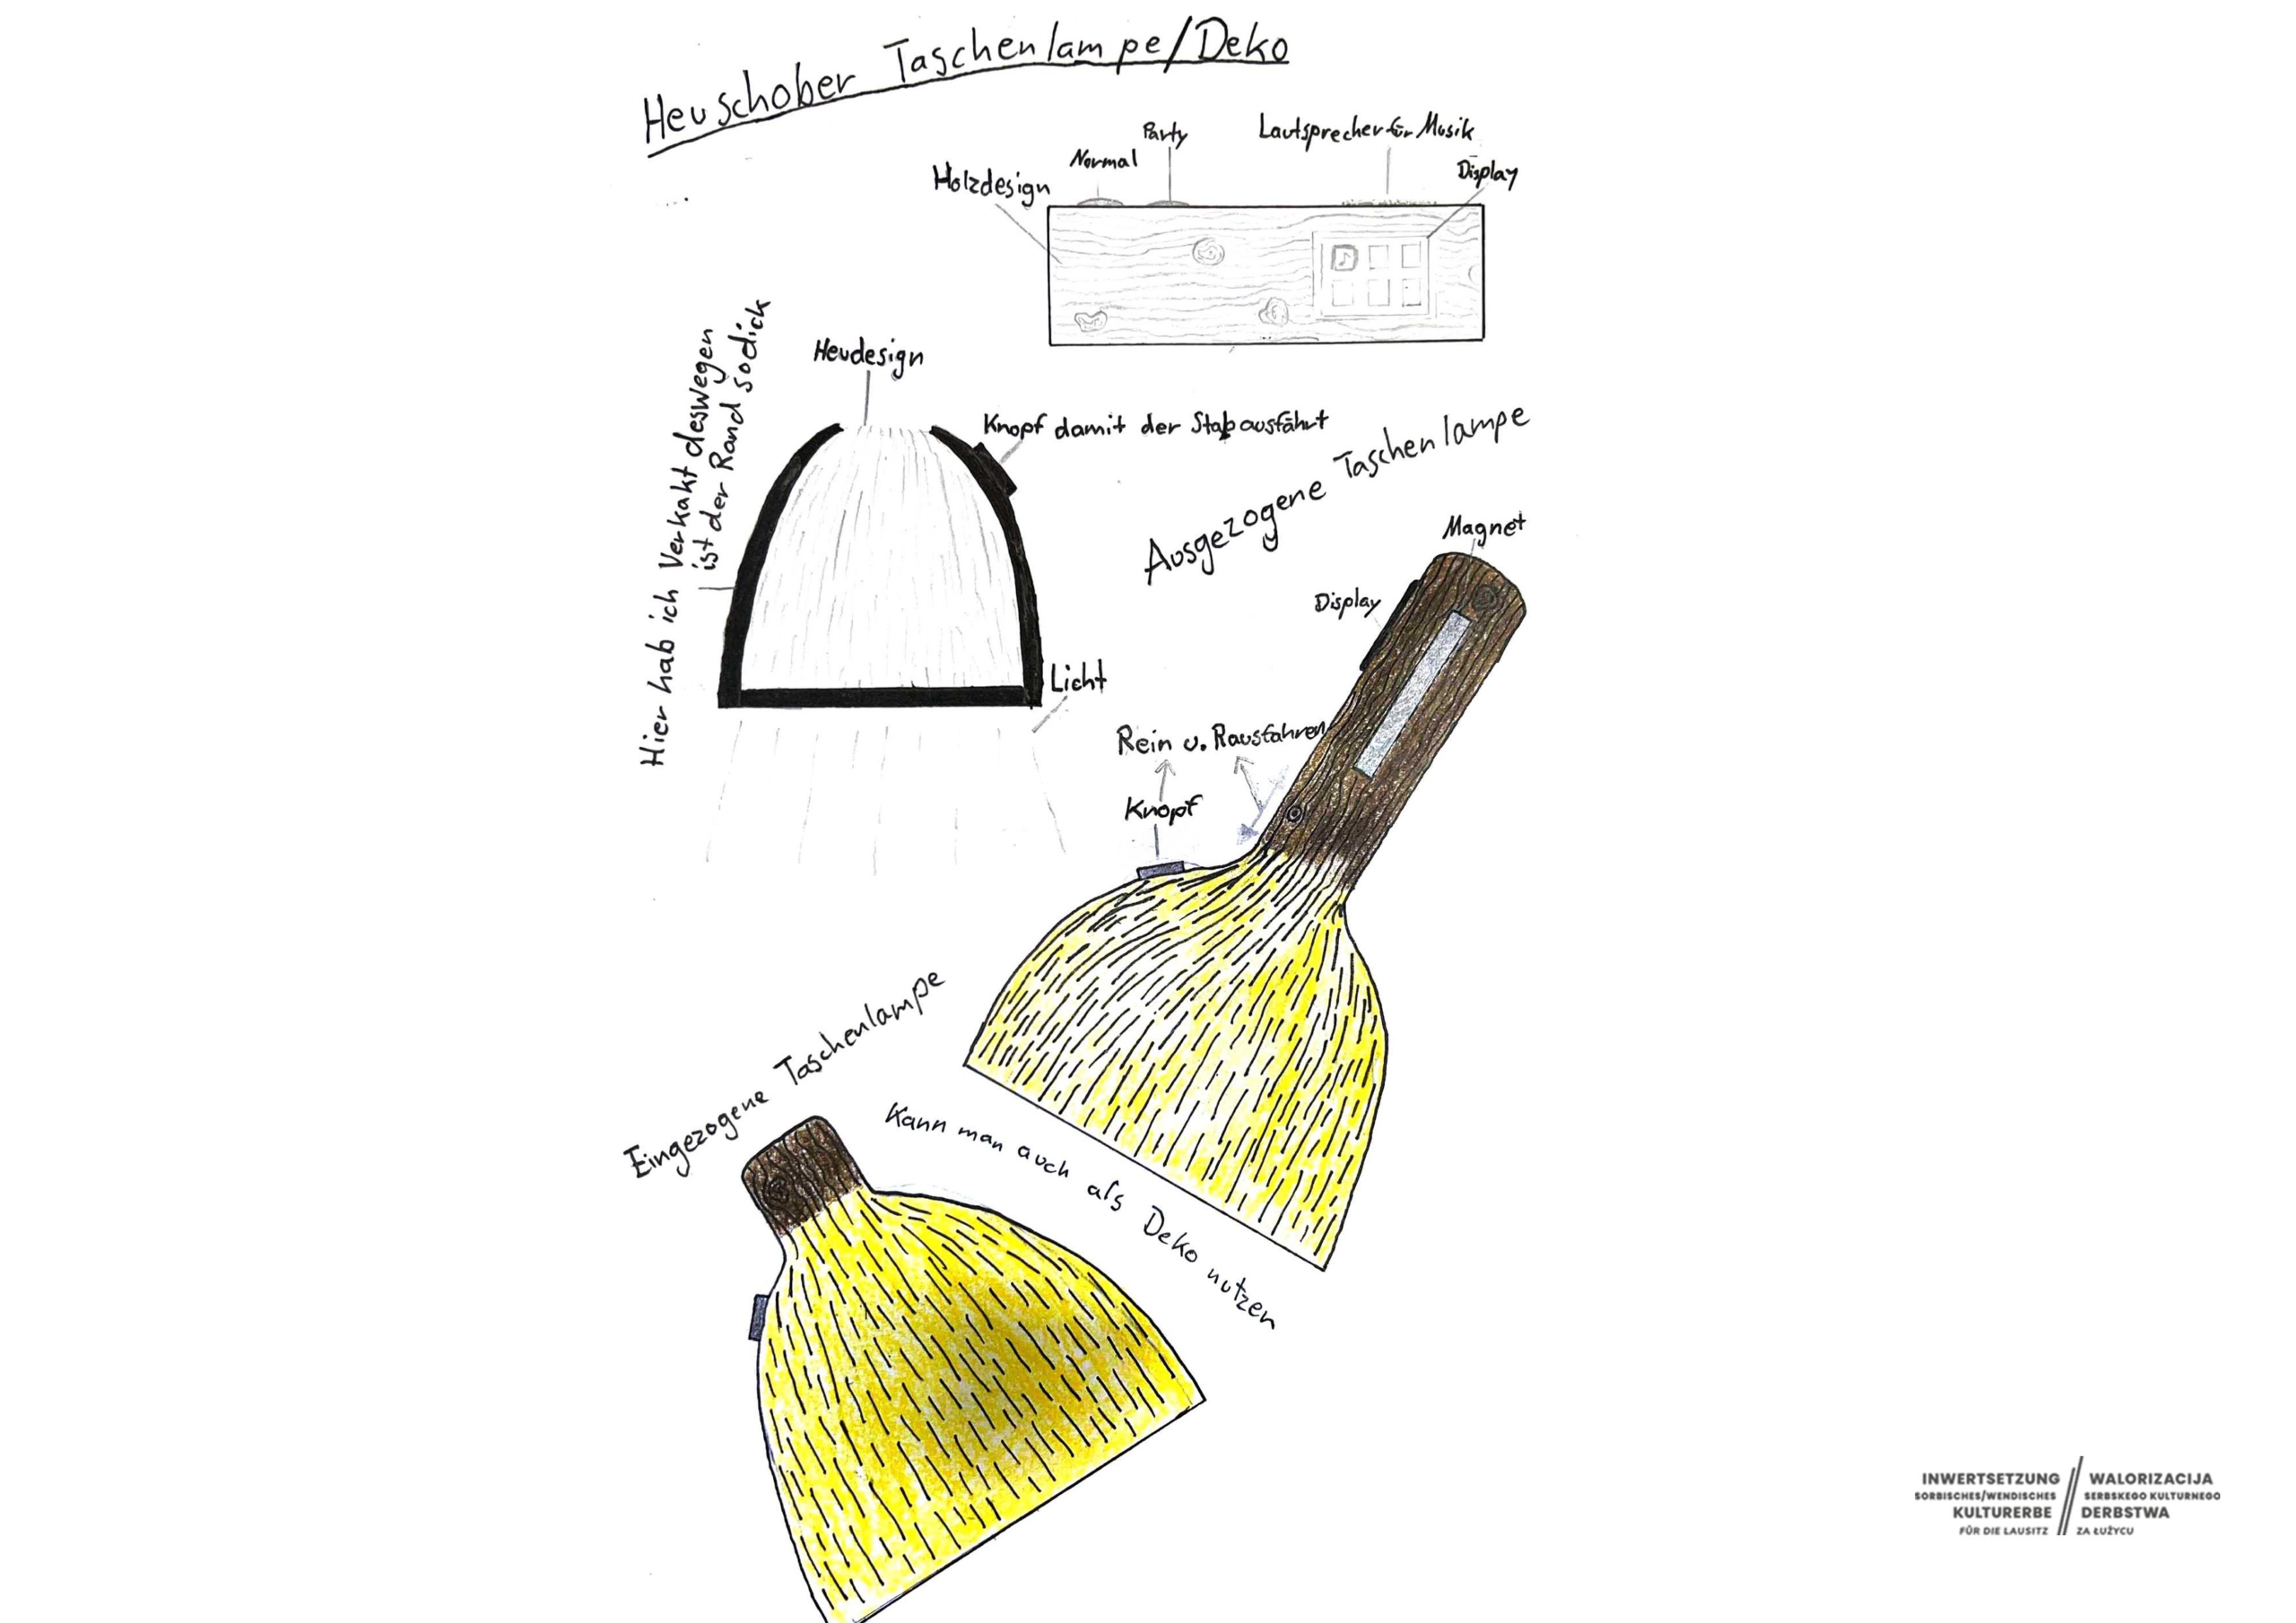 Heuschober Taschenlampe/Deko
Party
Lautsprecher für Musik
Normal
Display
Holzdesign
Heudesign
Hier hab ich Verkakt deswegen
ist der Rand so dick
Knopf damit der Stab ausfährt
Ausgezogene Taschenlampe
Magnet
Display
Licht
Rein u. Rausfahren
Knopf
Eingezogene Taschenlampe
Kann man auch als Deko nutzen
INWERTSETZUNG
SORBISCHES/WENDISCHES
KULTURERBE
FÜR DIE LAUSITZ
WALORIZACIJA
SERBSKEGO KULTURNEGO
DERBSTWA
ZA ŁUŻYCU